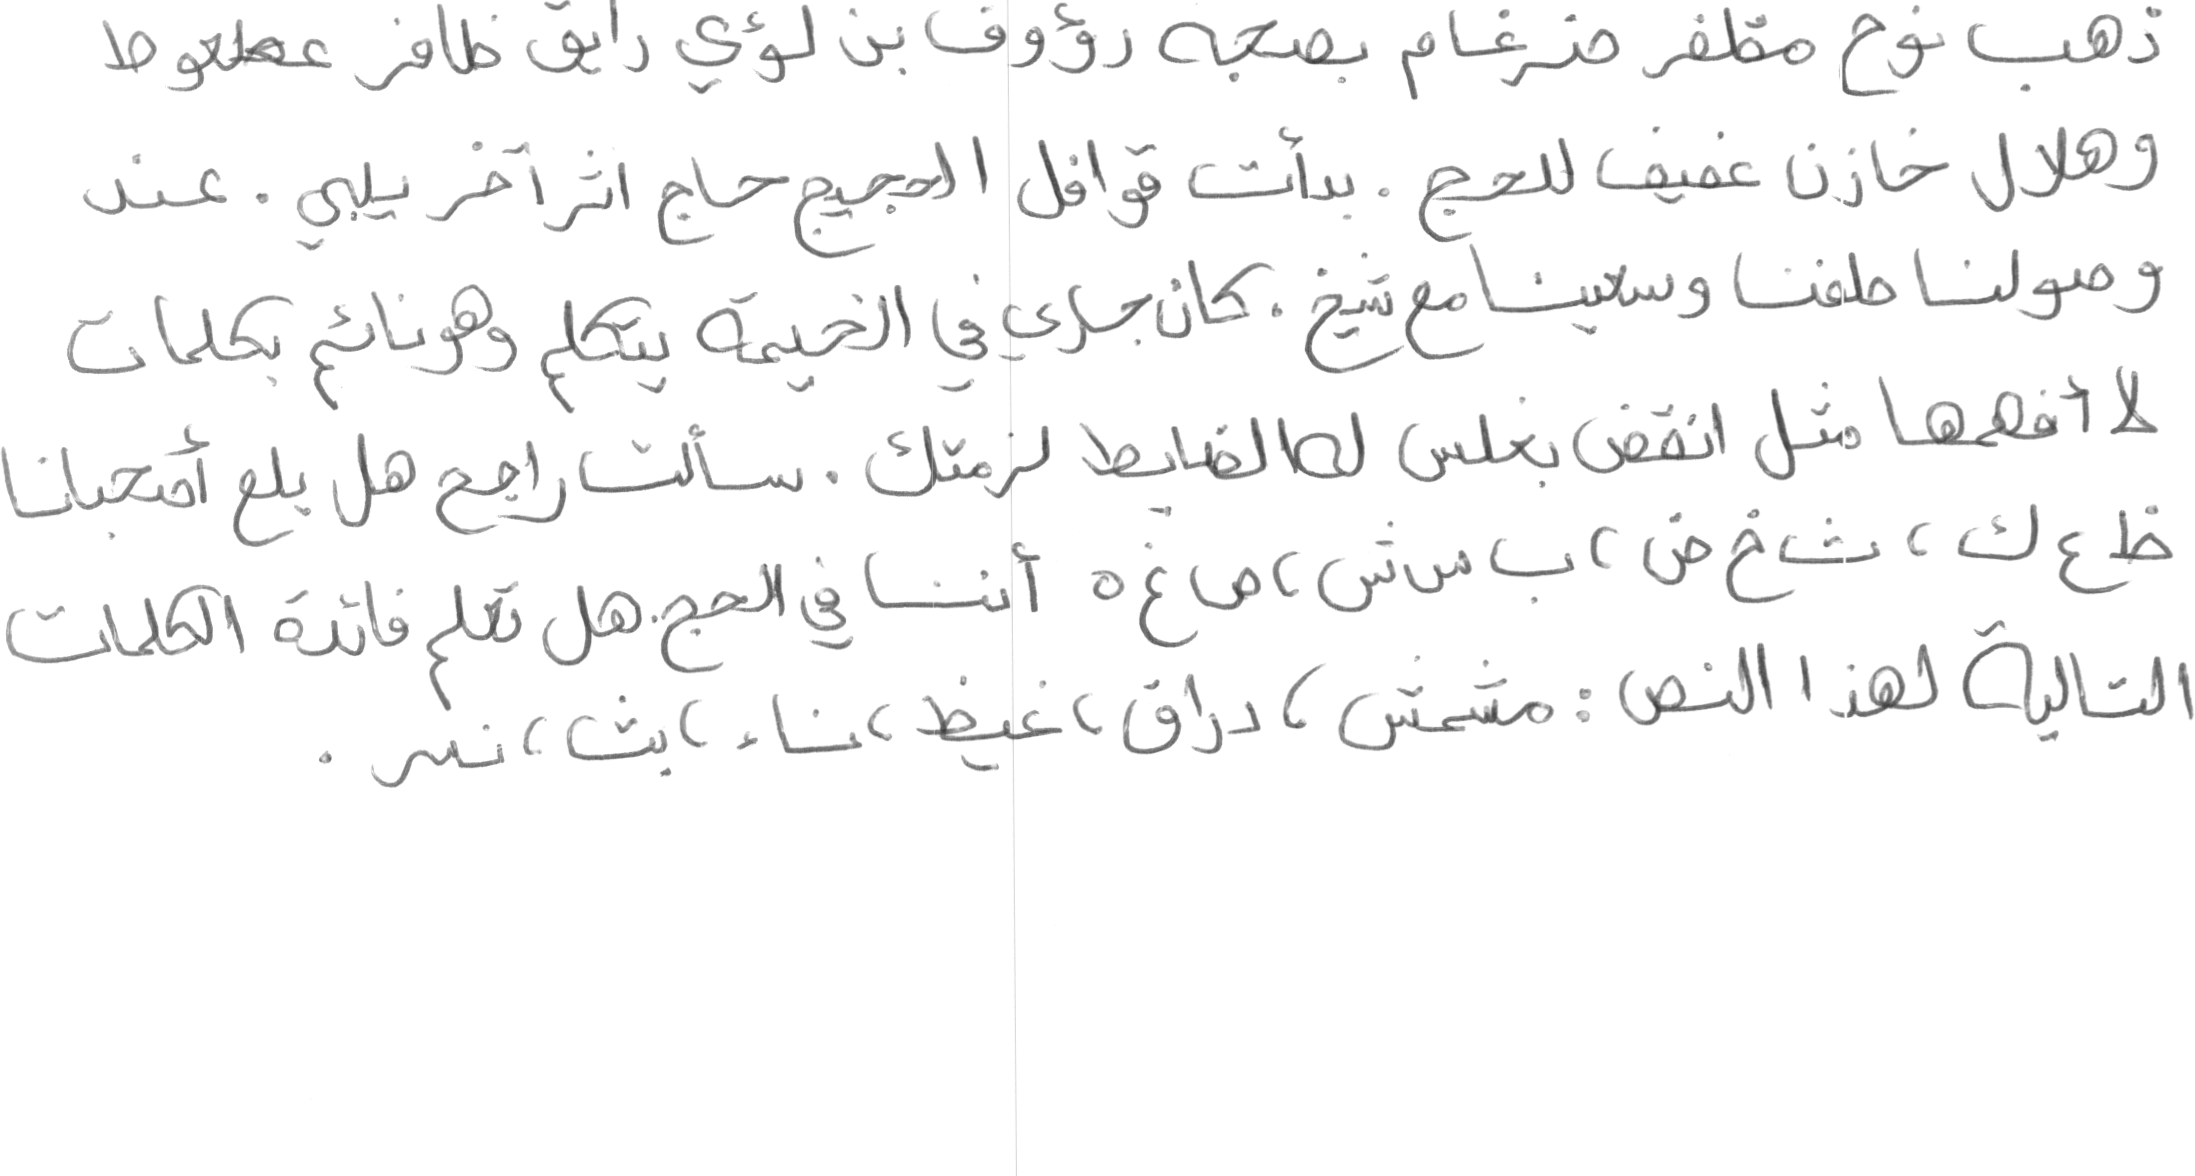 ذهب نوح مظفر ضرغام بصحبه رؤوف بن لؤي رايق ظافر عطعوط
وهلال خازن عفيف للحج . بدأت قوافل الحجيج حاج اثر آخر يلبي . عند
وصولنا طفنا وسعينا مع شيخ . كان جاري في الخيمة يتكلم وهو نائم بكلمات
لا أفهمها مثل انقض بغلس لظا لضابط لزمتك . سألت راجح هل بلع أصحبانا
ظ ع ك ، ث خ ض ، ب س ش ، ص غ ه أننا في الحج . هل تعلم فائدة الكلمات
التالية لهذا النص : مشمش ، دراق ، غيظ ، ناء ، بث ، نسر .